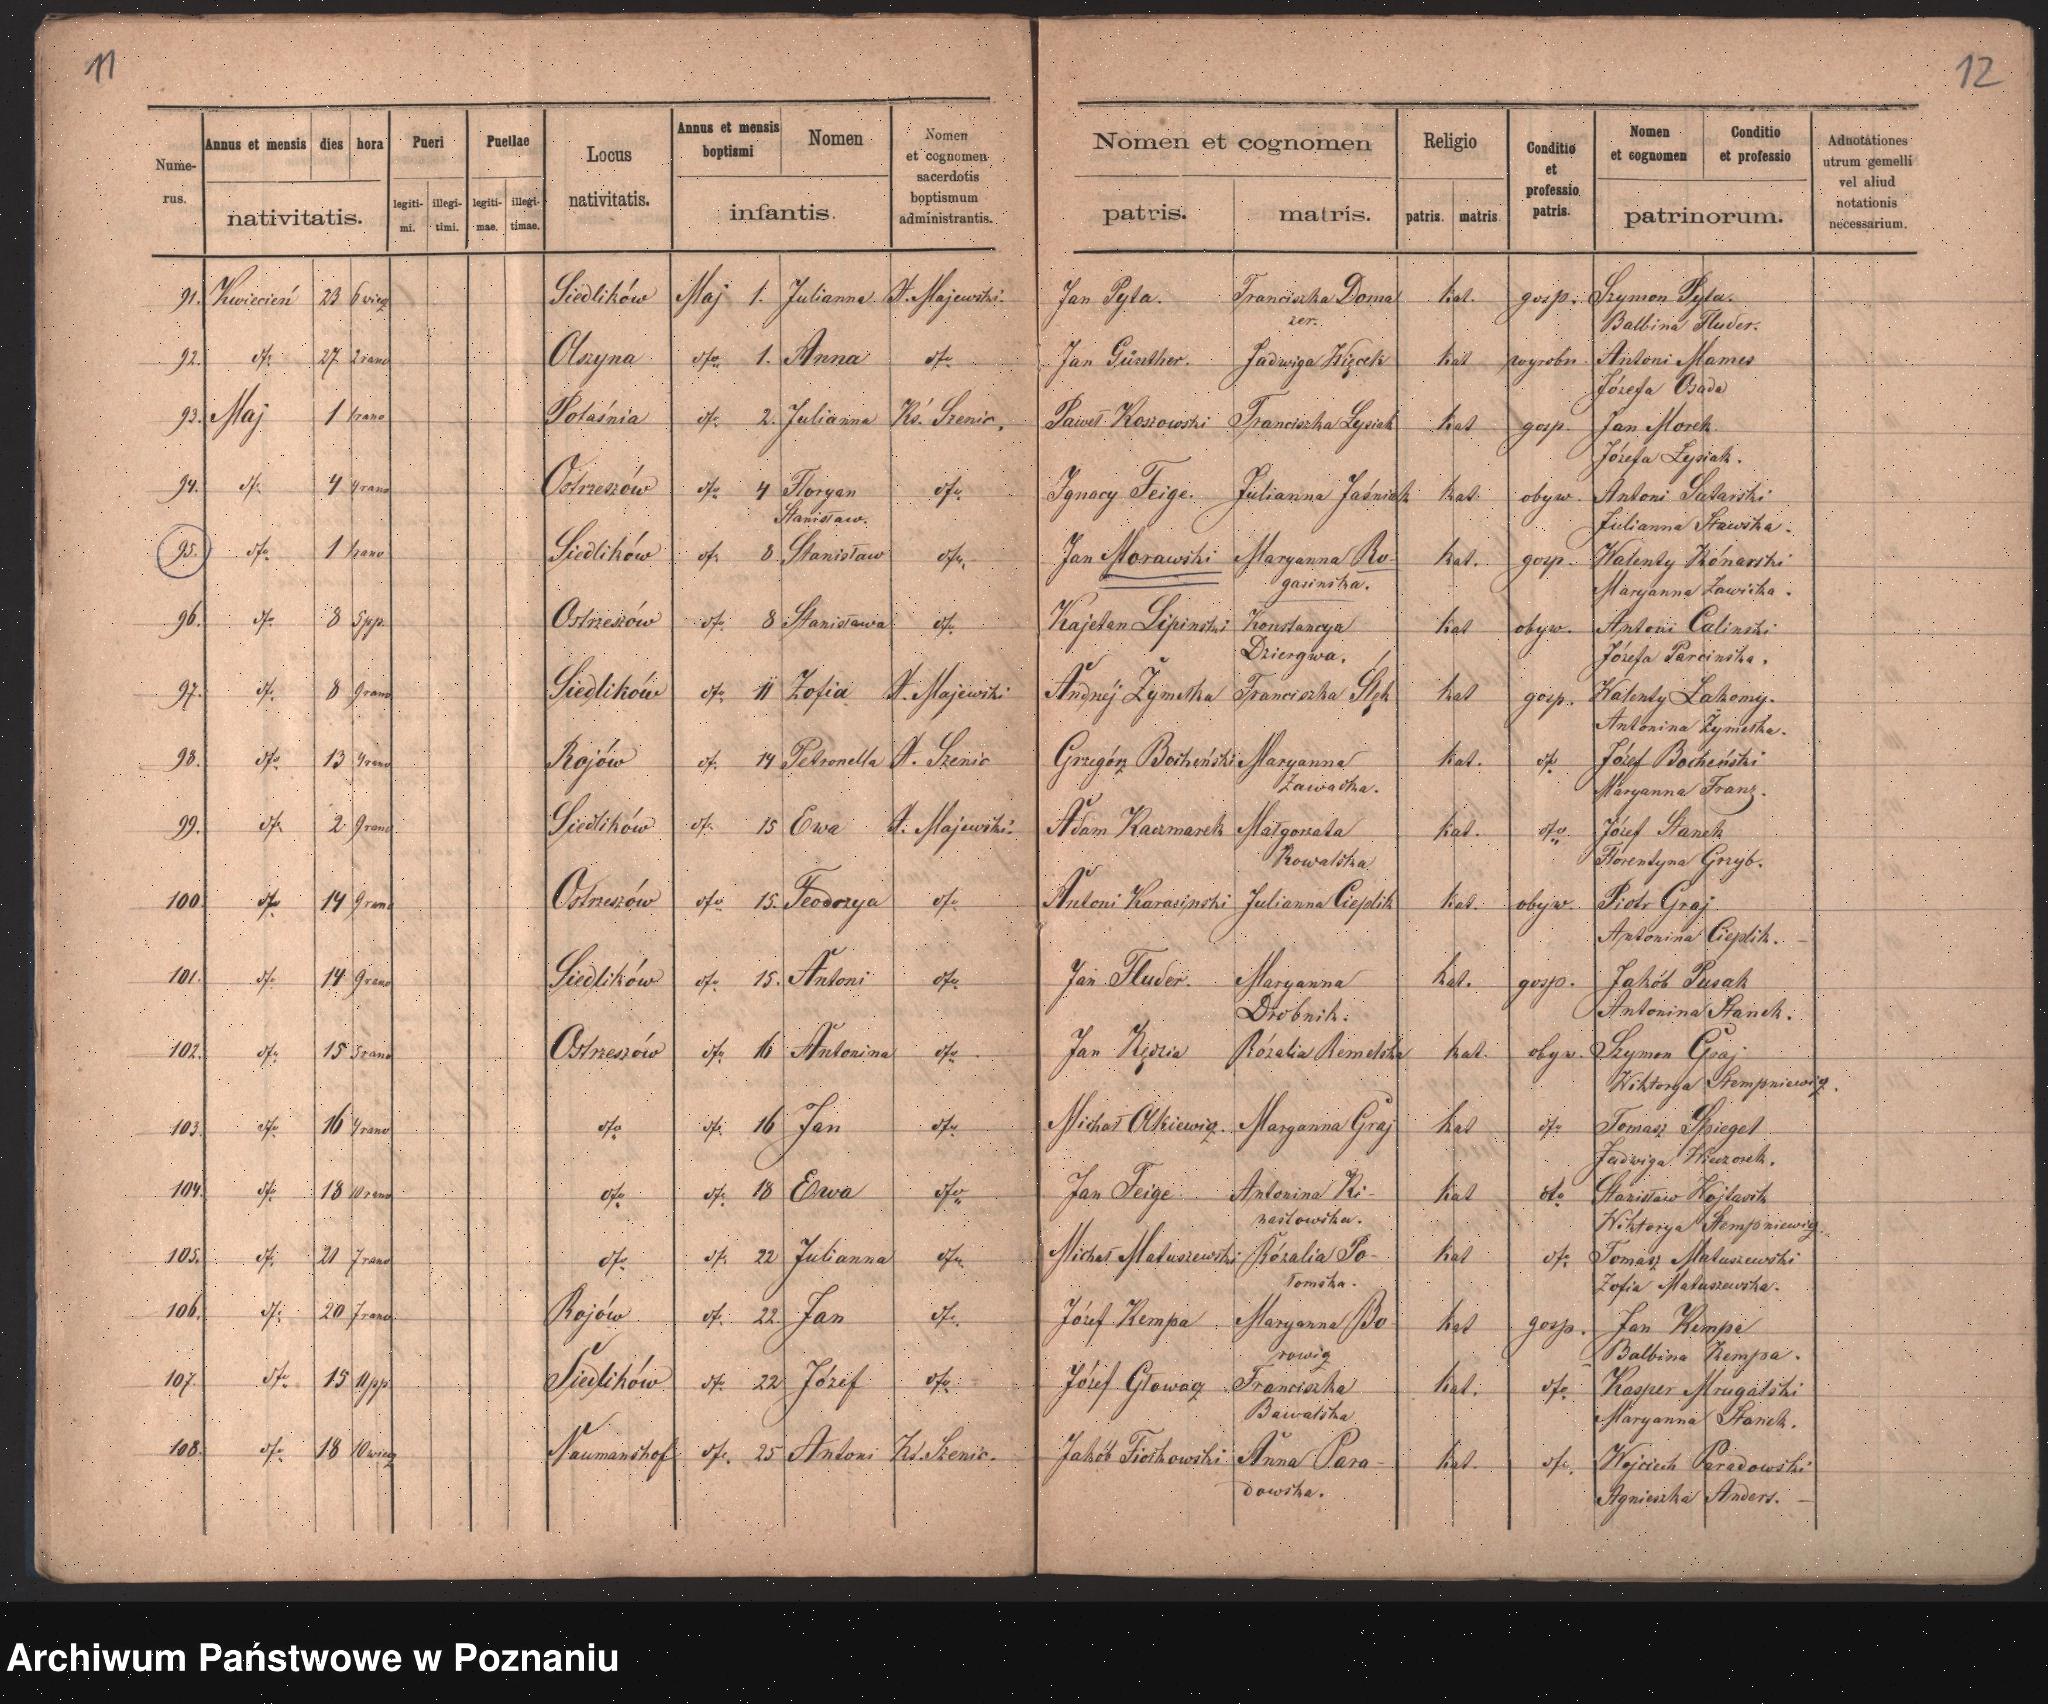 11
12
Numerus.
Annus et mensis dies hora
nativitatis.
Pueri
legitimi. illegitimi.
Puellae
legitimae. illegitimae.
Locus
nativitatis.
Annus et mensis boptismi
Nomen
infantis.
Nomen et cognomen sacerdotis boptismum administrantis.
Nomen et cognomen
patris. matris.
Religio
patris. matris
Conditio et professio patris.
Nomen et cognomen
Conditio et professio
patrinorum.
Adnotationes utrum gemelli vel aliud notationis necessarium.
91. Kwiecień 23 6 wiecz Siedlików Maj 1. Julianna X. Majewski Jan Pyta. Franciszka Doma kat. gosp. Szymon Pyta.
zer. Balbina Fluder.
92. dto 27 2 rano Olszyna dto 1. Anna dto Jan Günther. Jadwiga Więcek kat wyrobn. Antoni Mames
Józefa Osada
93. Maj 1 1 rano Potaśnia dto 2. Julianna Ks. Szenic. Paweł Koszowski Franciszka Łysiak kat gosp. Jan Morek
Józefa Łysiak.
94. dto 4 4 rano Ostrzeszów dto 4 Floryan dto Ignacy Feige. Julianna Jaśniak kat. obyw. Antoni Satarski
Stanisław. Julianna Stawska.
95. dto 1 1 rano Siedlików dto 8 Stanisław dto Jan Morawski Maryanna Ro- kat. gosp. Walenty Konarski
gasinska. Maryanna Zawiska.
96. dto 8 5 pp. Ostrzeszów dto 8 Stanisława dto Kajetan Lipinski Konstancya kat obyw. Antoni Calinski
Dziergwa. Józefa Parcinska.
97. dto 8 9 rano Siedlików dto 11 Zofia X. Majewski Andrzéj Żymełka Franciszka Ślęk kat gosp. Walenty Łakomy.
Antonina Żymełka.
98. dto 13 4 rano Rojów dto 14 Petronella X. Szenic Grzegórz Bocheński Maryanna kat. dto Józef Bocheński
Zawadka. Maryanna Franz.
99. dto 2 9 rano Siedlików dto 15 Ewa X. Majewski. Adam Kaczmarek Małgorzata kat. dto Józef Stanek
Kowalska Florentyna Grzyb.
100. dto 14 9 rano Ostrzeszów dto 15. Teodozya dto Antoni Karasinski Julianna Cieplik kat. obyw. Piotr Graj
Antonina Cieplik. –
101. dto 14 9 rano Siedlików dto 15. Antoni dto Jan Fluder. Maryanna kat. gosp. Jakób Pusak
Drobnik. Antonina Stanek.
102. dto 15 5 rano Ostrzeszów dto 16 Antonina dto Jan Kędzia Rózalia Remelska kat. obyw. Szymon Graj
Wiktorya Stempniewicz.
103. dto 16 4 rano dto dto 16 Jan dto Michał Olkiewicz. Maryanna Graj kat dto Tomasz Spiegel
Jadwiga Wieczorek.
104. dto 18 10 rano dto dto 18 Ewa dto Jan Feige Antonina Ki- kat dto Stanisław Wojtasik
zastowska. Wiktorya Stempniewicz.
105. dto 21 7 rano dto dto 22 Julianna dto Michał Matuszewski Rózalia Po- kat dto Tomasz Matuszewski
tomska. Zofia Matuszewska.
106. dto 20 7 rano Rojów dto 22 Jan dto Józef Kempa Maryanna Bo kat gosp. Jan Kempa
rowicz Balbina Kempa.
107. dto 15 11 pp Siedlików dto 22 Józef dto Józef Głowacz Franciszka kat. dto Kasper Mrugalski
Bawalska Maryanna Stanek.
108. dto 18 10 wiecz Naumanshof dto 25 Antoni Ks. Szenic. Jakób Fiołkowski Anna Para- kat. dto Wojciech Paradowski
dowska. Agnieszka Anders. –
Archiwum Państwowe w Poznaniu